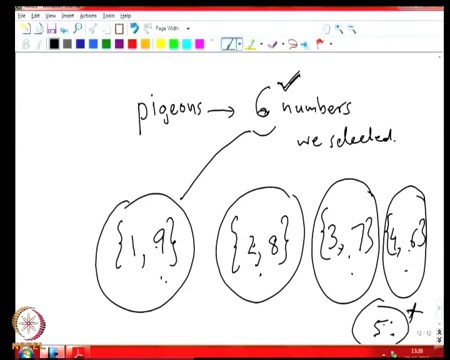 File Edit View Insert Actions Tools Help
Page Width
pigeons → 6 numbers
we selected.
{1, 9} {2, 8} {3, 7} {4, 6}
5
12 / 12
13:20